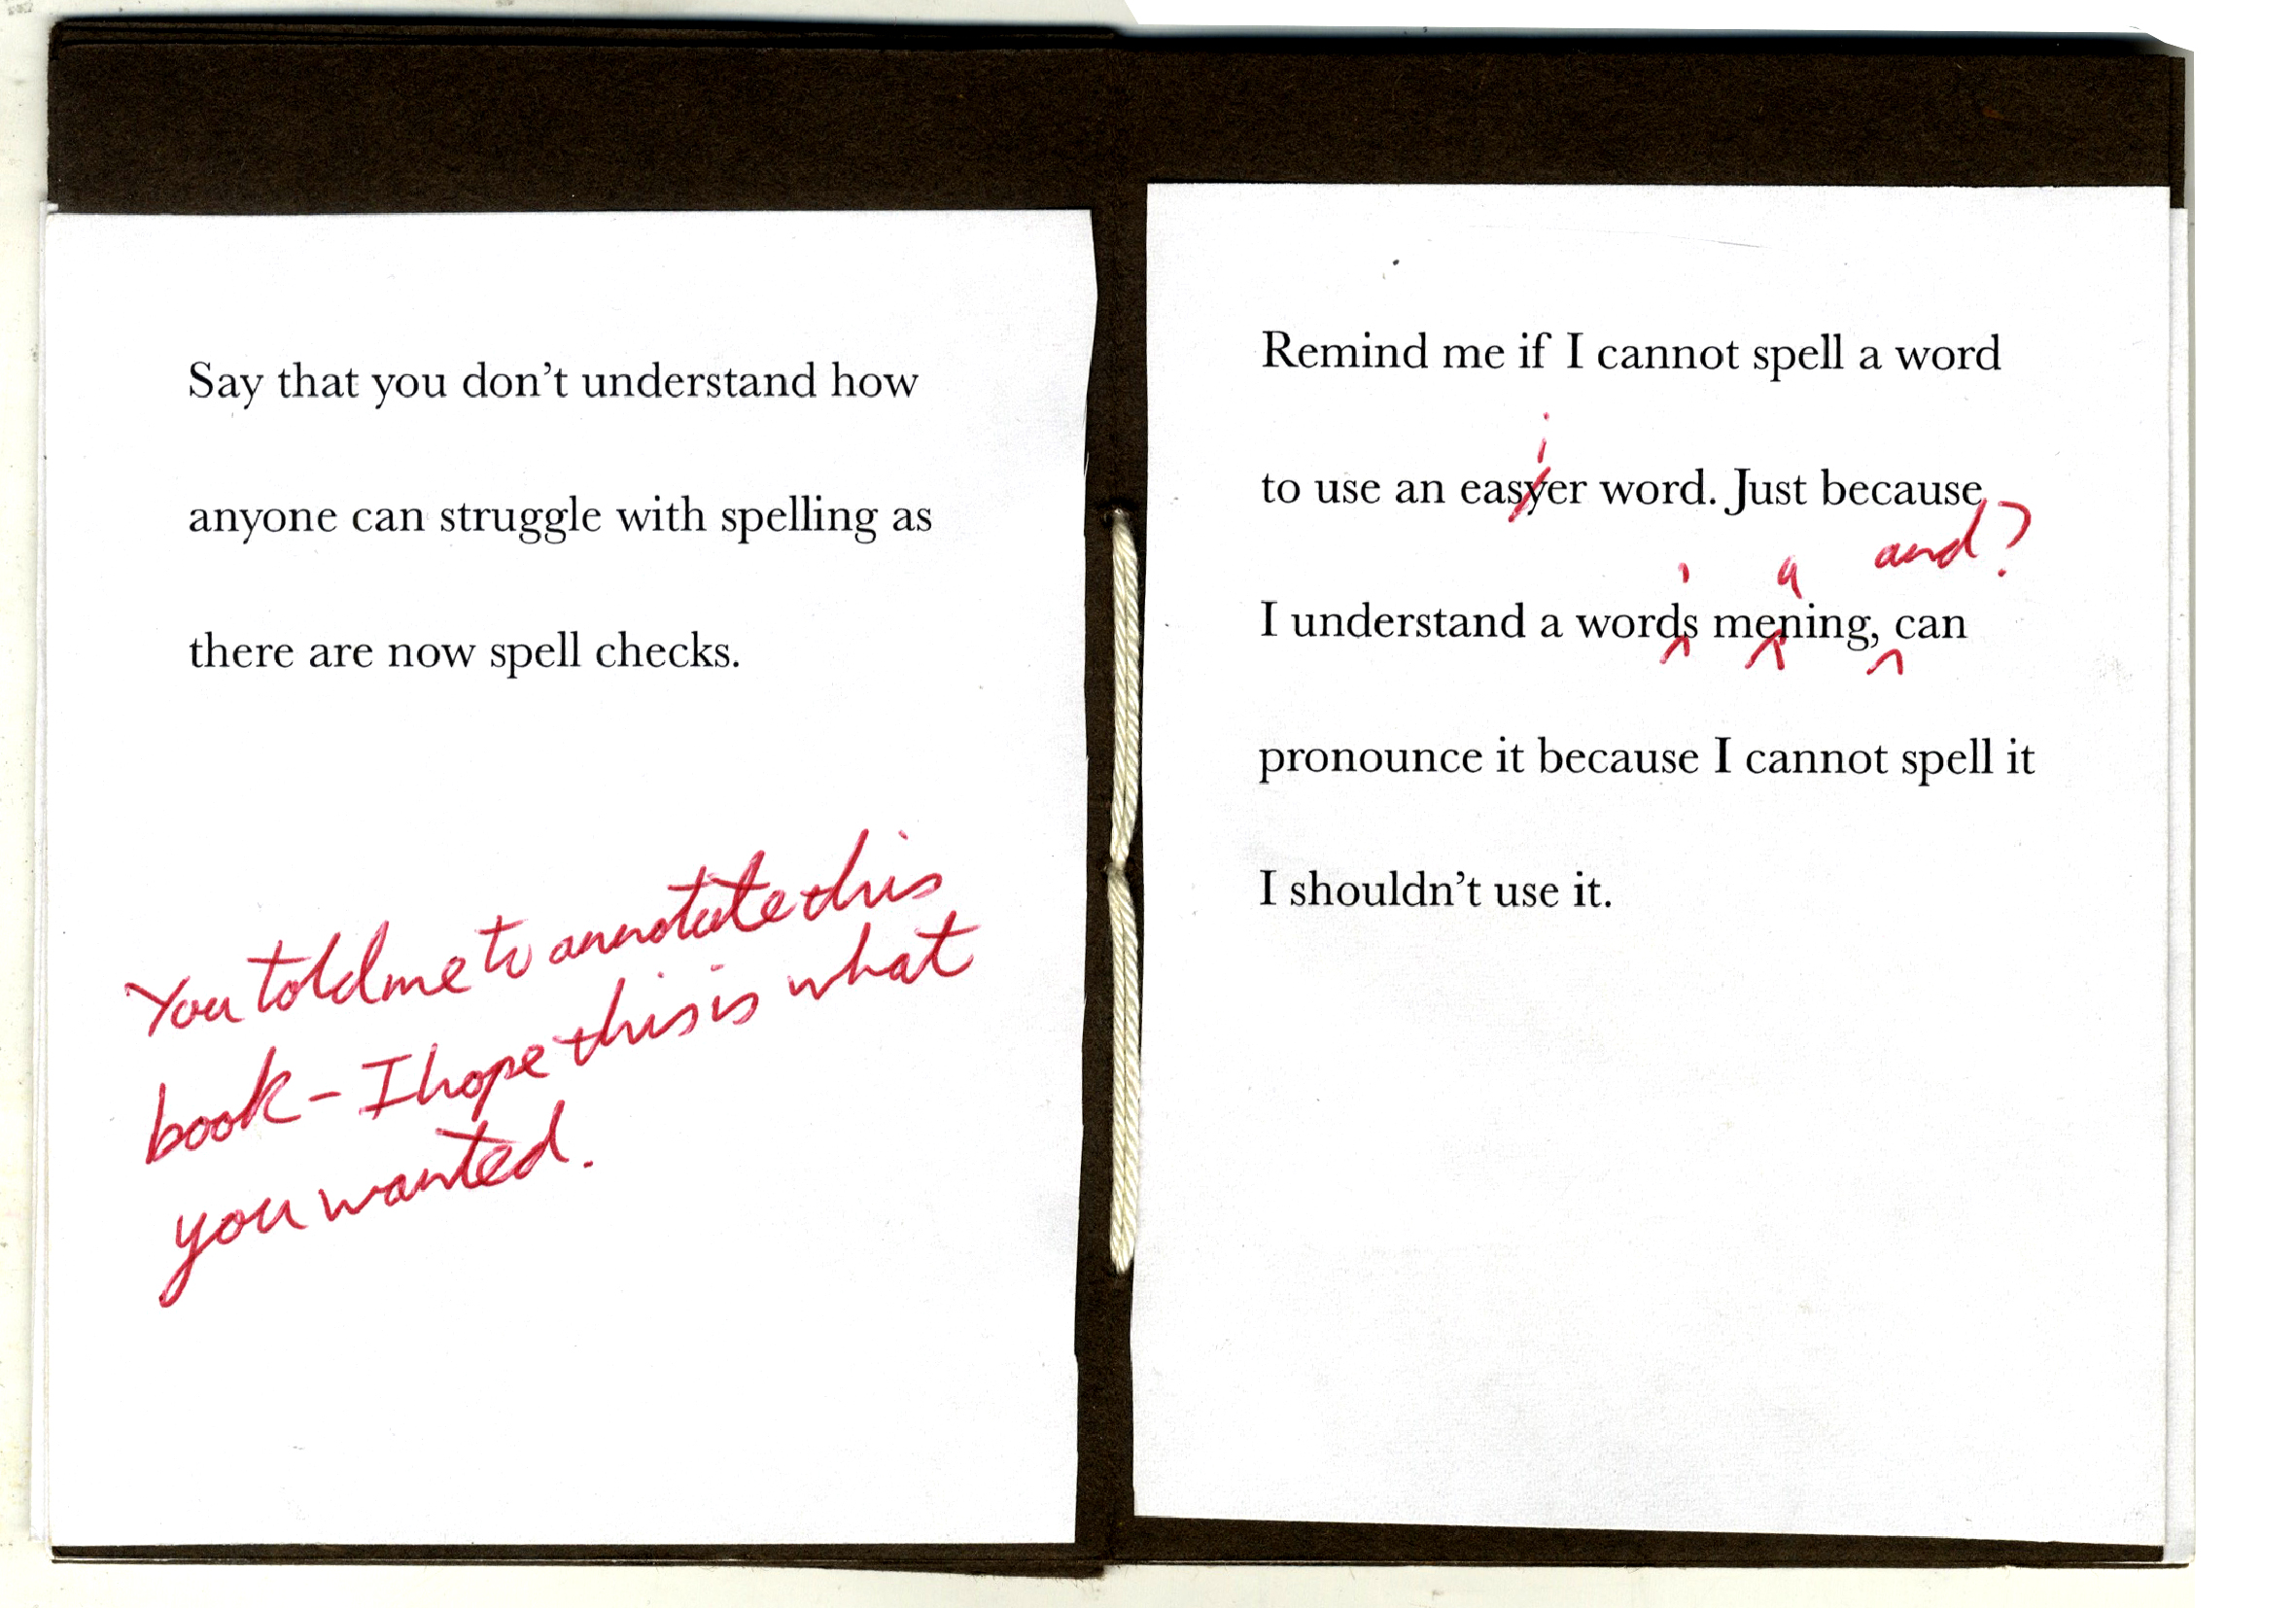 Say that you don’t understand how
anyone can struggle with spelling as
there are now spell checks.
You told me to annotate this
book – I hope this is what
you wanted.
Remind me if I cannot spell a word
i
to use an easyer word. Just because
' a and?
I understand a words mening, can
pronounce it because I cannot spell it
I shouldn’t use it.